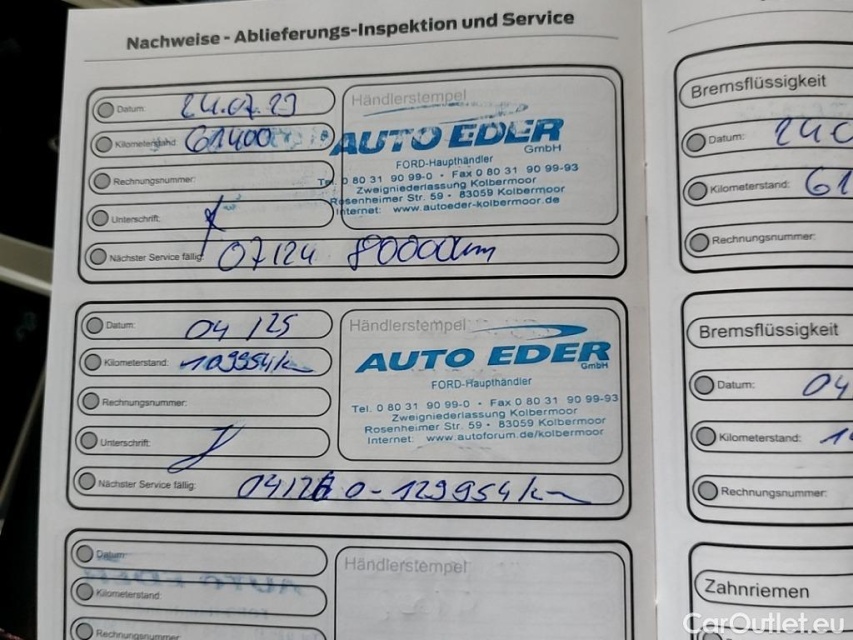 Nachweise - Ablieferungs-Inspektion und Service
Datum: 24.07.23
Kilometerstand: 61400
Rechnungsnummer:
Unterschrift:
Nächster Service fällig: 07/24 80000km
Händlerstempel
AUTO EDER
GmbH
FORD-Haupthändler
Tel. 0 80 31 90 99-0 • Fax 0 80 31 90 99-93
Zweigniederlassung Kolbermoor
Rosenheimer Str. 59 • 83059 Kolbermoor
Internet: www.autoeder-kolbermoor.de
Datum: 04/25
Kilometerstand: 109954km
Rechnungsnummer:
Unterschrift:
Nächster Service fällig: 04/26 0-129954km
Händlerstempel
AUTO EDER
GmbH
FORD-Haupthändler
Tel. 0 80 31 90 99-0 • Fax 0 80 31 90 99-93
Zweigniederlassung Kolbermoor
Rosenheimer Str. 59 • 83059 Kolbermoor
Internet: www.autoforum.de/kolbermoor
Datum:
Kilometerstand:
Rechnungsnummer:
Händlerstempel
Bremsflüssigkeit
Datum: 240
Kilometerstand: 61
Rechnungsnummer:
Bremsflüssigkeit
Datum: 04
Kilometerstand: 1
Rechnungsnummer:
Zahnriemen
CarOutlet.eu